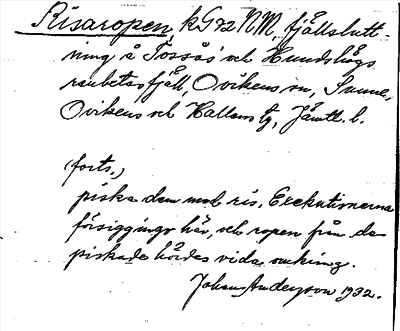 Risaropen, kG92NM, fjällslutt-
ning å Tossås' och Hundshögs
renbetesfjäll, Ovikens sn, Sunne,
Ovikens och Hallens tg, Jämtl. l.
(forts.)
piska dem med ris. Exekutionerna
försiggingo här, och ropen från de
piskade hördes vida omkring.
Johan Anderson 1932.